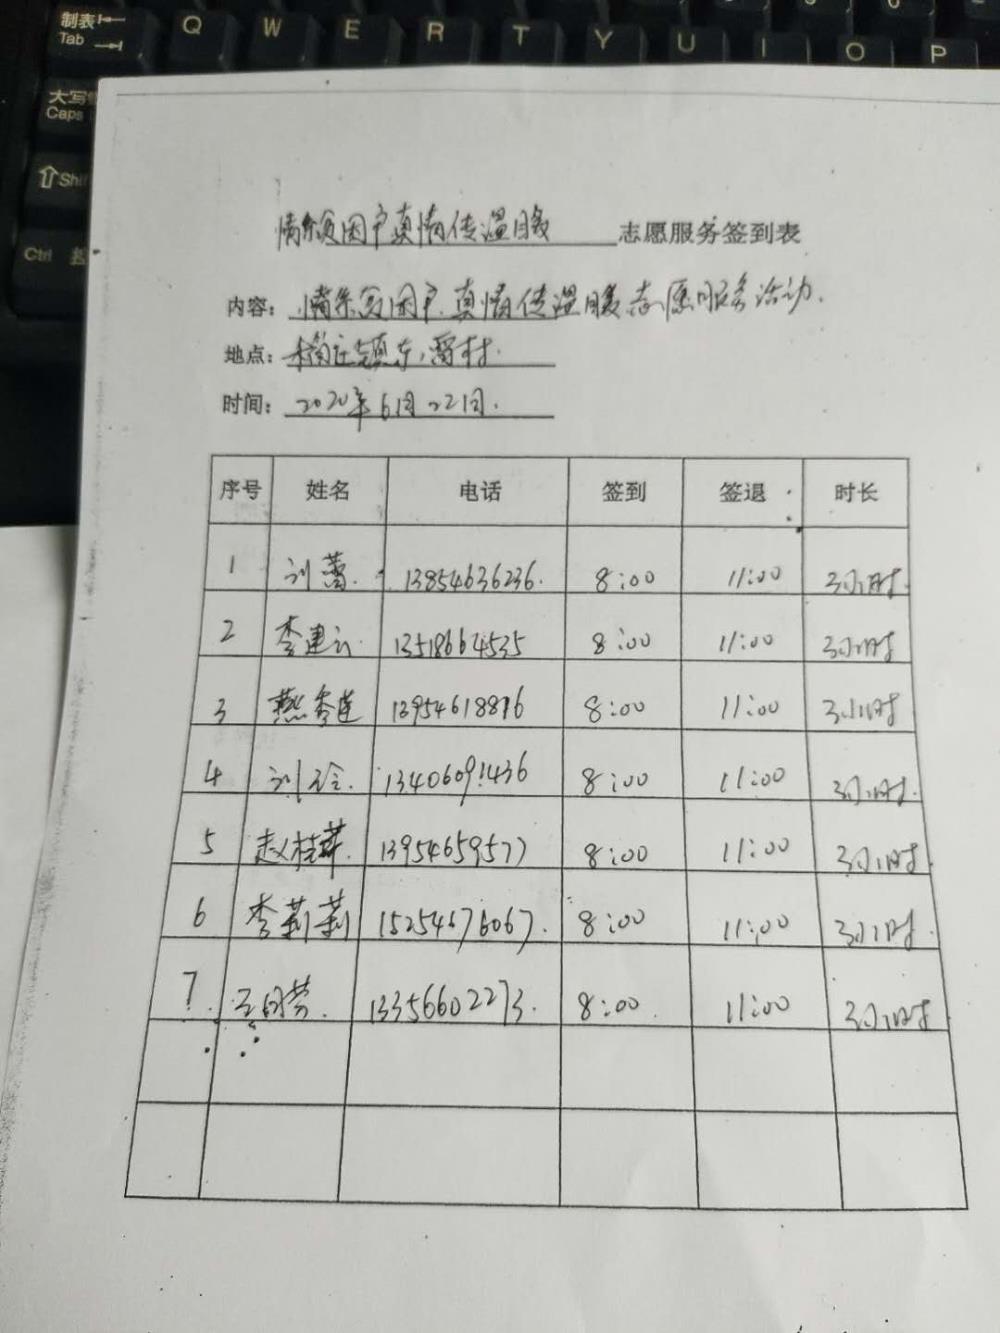 制表 Tab Q W E R T Y U I O P
大写 Caps
Shif
Ctrl
情系贫困户真情传温暖 志愿服务签到表
内容：情系贫困户.真情传温暖志愿服务活动.
地点：稻庄镇东雷村.
时间：2020年6月22日.
序号 姓名 电话 签到 签退 时长
1 刘蕾. 13854636236. 8:00 11:00 3小时.
2 李建云 13518664535 8:00 11:00 3小时
3 燕秀莲 13954618816 8:00 11:00 3小时
4 刘玲. 13406091436 8:00 11:00 3小时.
5 赵桂 13954659577 8:00 11:00 3小时.
6 李莉莉 15254676067. 8:00 11:00 3小时.
7. 13356602273. 8:00. 11:00 3小时